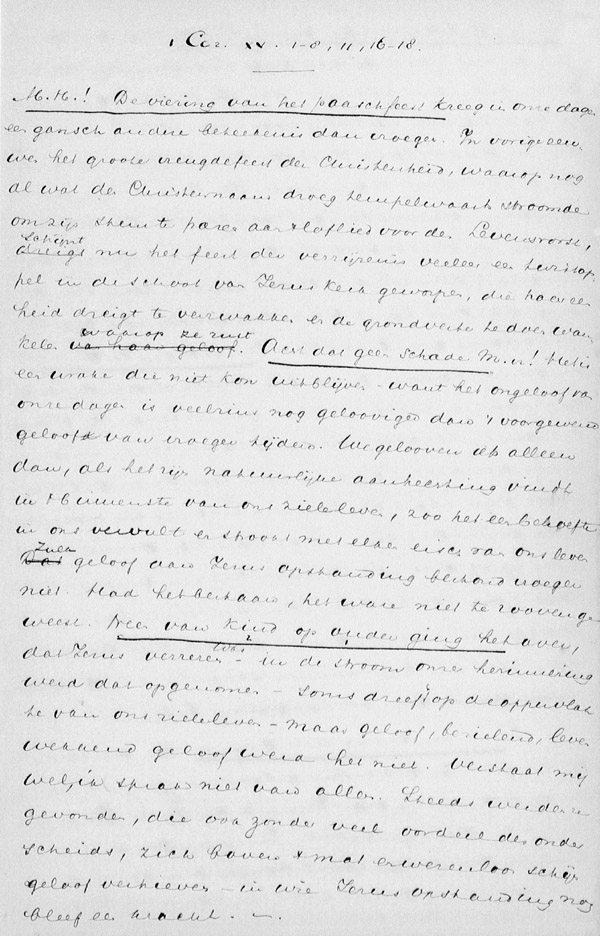 1 Cor. XV. 1-8, 11, 16-18.
M.H.! De viering van het paaschfeest kreeg in onze dagen
een gansch andere beteekenis dan vroeger. In vorige eeu-
wen het groote vreugdefeest der Christenheid, waarop nog
al wat den Christennaam droeg tempelwaarts stroomde
om zijn stem te paren aan 't loflied voor den Levensvorst,
schijnt
dreigt nu het feest der verrijzenis veeleer een twistap-
pel in de school van Jezus Kerk geworpen, die haar een
heid dreigt te verzwakken en de grondveste te doen wan-
waarop ze rust
kelen van haar geloof. Acht dat geen schade M.H.! Het is
een wrake die niet kon uitblijven - want het ongeloof van
onze dagen is veelzins nog geloviger dan 't voorgewend
geloof van vroeger tijden. We gelooven alleen
dan, als het zijn natuurlijke aanhechting vindt
in 't binnenste van ons zieleleven, zoo het een behoefte
in ons vervult en strookt met elken eisch van ons leven
Zulk
Dat geloof aan Jezus opstanding bestond vroeger
niet. Had het bestaan, het ware niet te rooven ge
weest. Neen van kind op kind ging het over,
dat Jezus verrezen was - in de stroom onzer herinnering
werd dat opgenomen - soms dreef 't op de oppervlak
te van ons zieleleven - maar geloof, bezielend, leven
wekkend geloof werd het niet. Verstaat mij
wel, ik sprak niet van allen. Steeds werden er
gevonden, die ook zonder veel oordeel des onder
scheids, zich boven 't mat en werenloos schijn
geloof verhieven - in wie Jezus opstanding nog
bleef een kracht. -